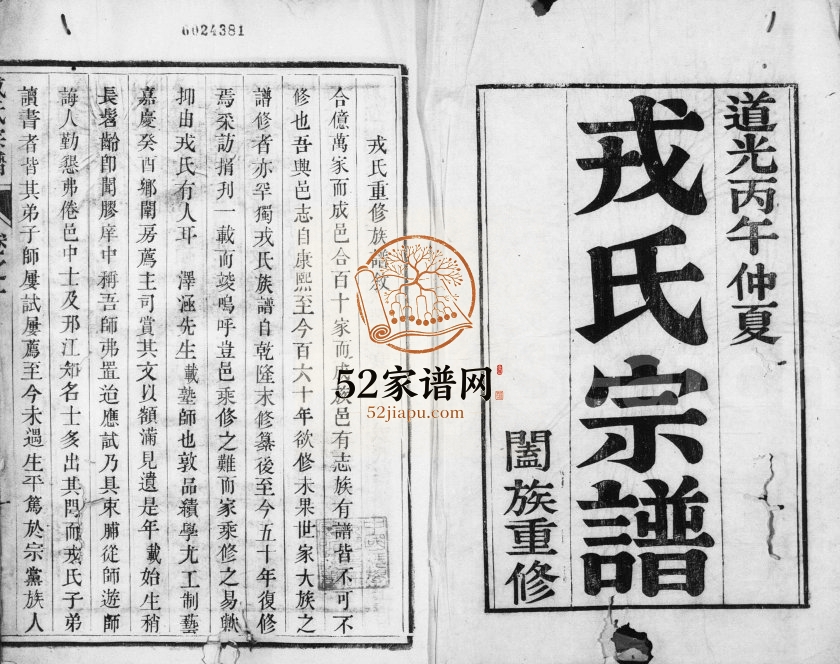 6024381
道光丙午仲夏
戎氏宗譜
闔族重修
戎氏重修族譜敘
合億萬家而成邑合百十家而成族邑有志族有譜皆不可不
修也吾興邑志自康熙至今百六十年欲修未果世家大族之
譜修者亦罕獨戎氏族譜自乾隆末修纂後至今五十年復修
焉采訪捐刋一載而竣嗚呼豈邑乘修之難而家乘修之易歟
抑由戎氏有人耳 澤涵先生載塾師也敦品績學尤工制藝
嘉慶癸酉鄉闈房薦主司賞其文以額滿見遺是年載始生稍
長髫齡卽聞膠庠中稱吾師弗置迨應試乃具束脯從師遊師
誨人勤懇弗倦邑中士及邗江知名士多出其門而戎氏子弟
讀書者皆其弟子師屢試屢薦至今未遇生平篤於宗黨族人
52家谱网
52jiapu.com